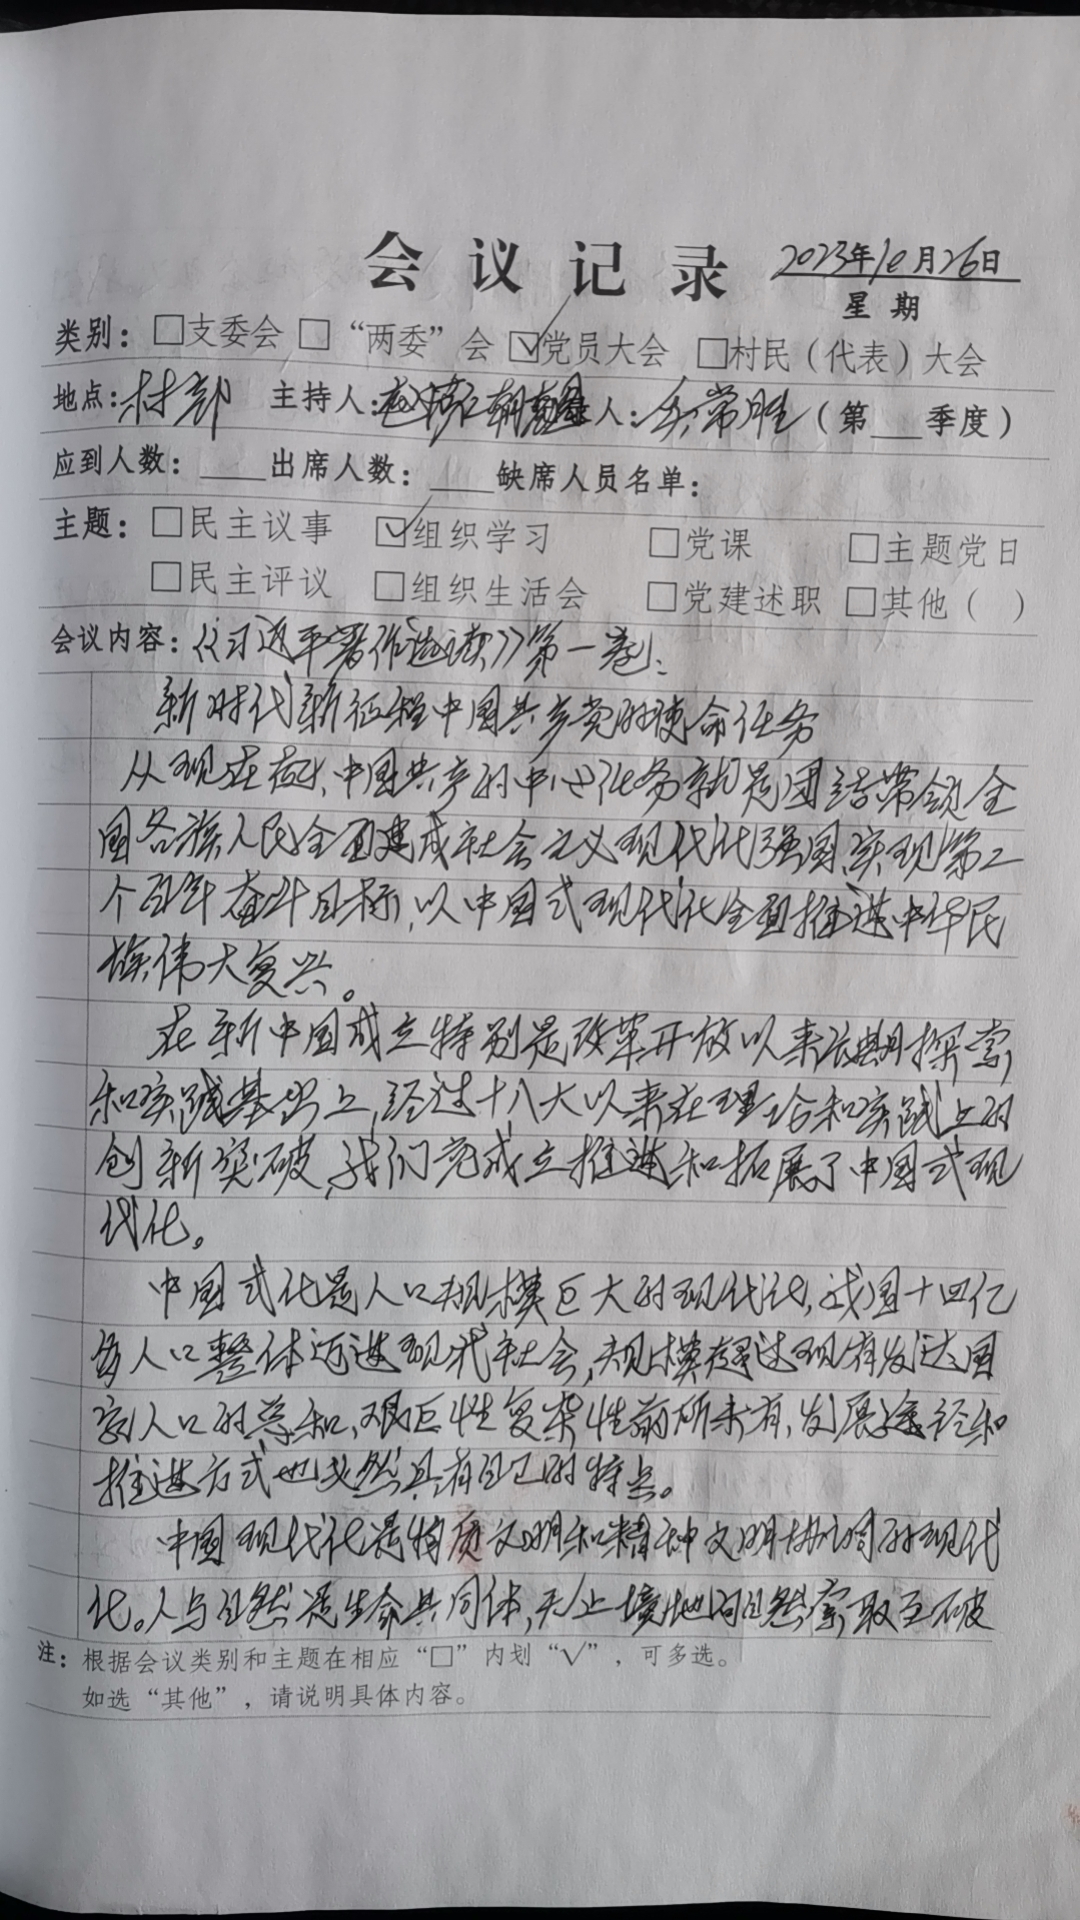 会议记录 2023年10月26日
星期
类别：□支委会 □“两委”会 ☑党员大会 □村民（代表）大会
地点：村部 主持人： 人：吴常胜（第___季度）
应到人数：____出席人数：____缺席人员名单：
主题：□民主议事 ☑组织学习 □党课 □主题党日
□民主评议 □组织生活会 □党建述职 □其他（ ）
会议内容：《习近平著作选读》第一卷：
新时代新征程中国共产党的使命任务
从现在起，中国共产的中心任务就是团结带领全
国各族人民全面建成社会主义现代化强国、实现第二
个百年奋斗目标，以中国式现代化全面推进中华民
族伟大复兴。
在新中国成立特别是改革开放以来长期探索
和实践基础上，经过十八大以来在理论和实践上的
创新突破，我们完成立推进和拓展了中国式现
代化。
中国式化是人口规模巨大的现代化，我国十四亿
多人口整体迈进现代社会，规模超过现有发达国
家人口的总和，艰巨性复杂性前所未有，发展途径和
推进方式也必然具有自己的特点。
中国现代化是物质文明和精神文明协调的现代
化。人与自然是生命共同体，无止境地向自然索取至破
注：根据会议类别和主题在相应“□”内划“√”，可多选。
如选“其他”，请说明具体内容。